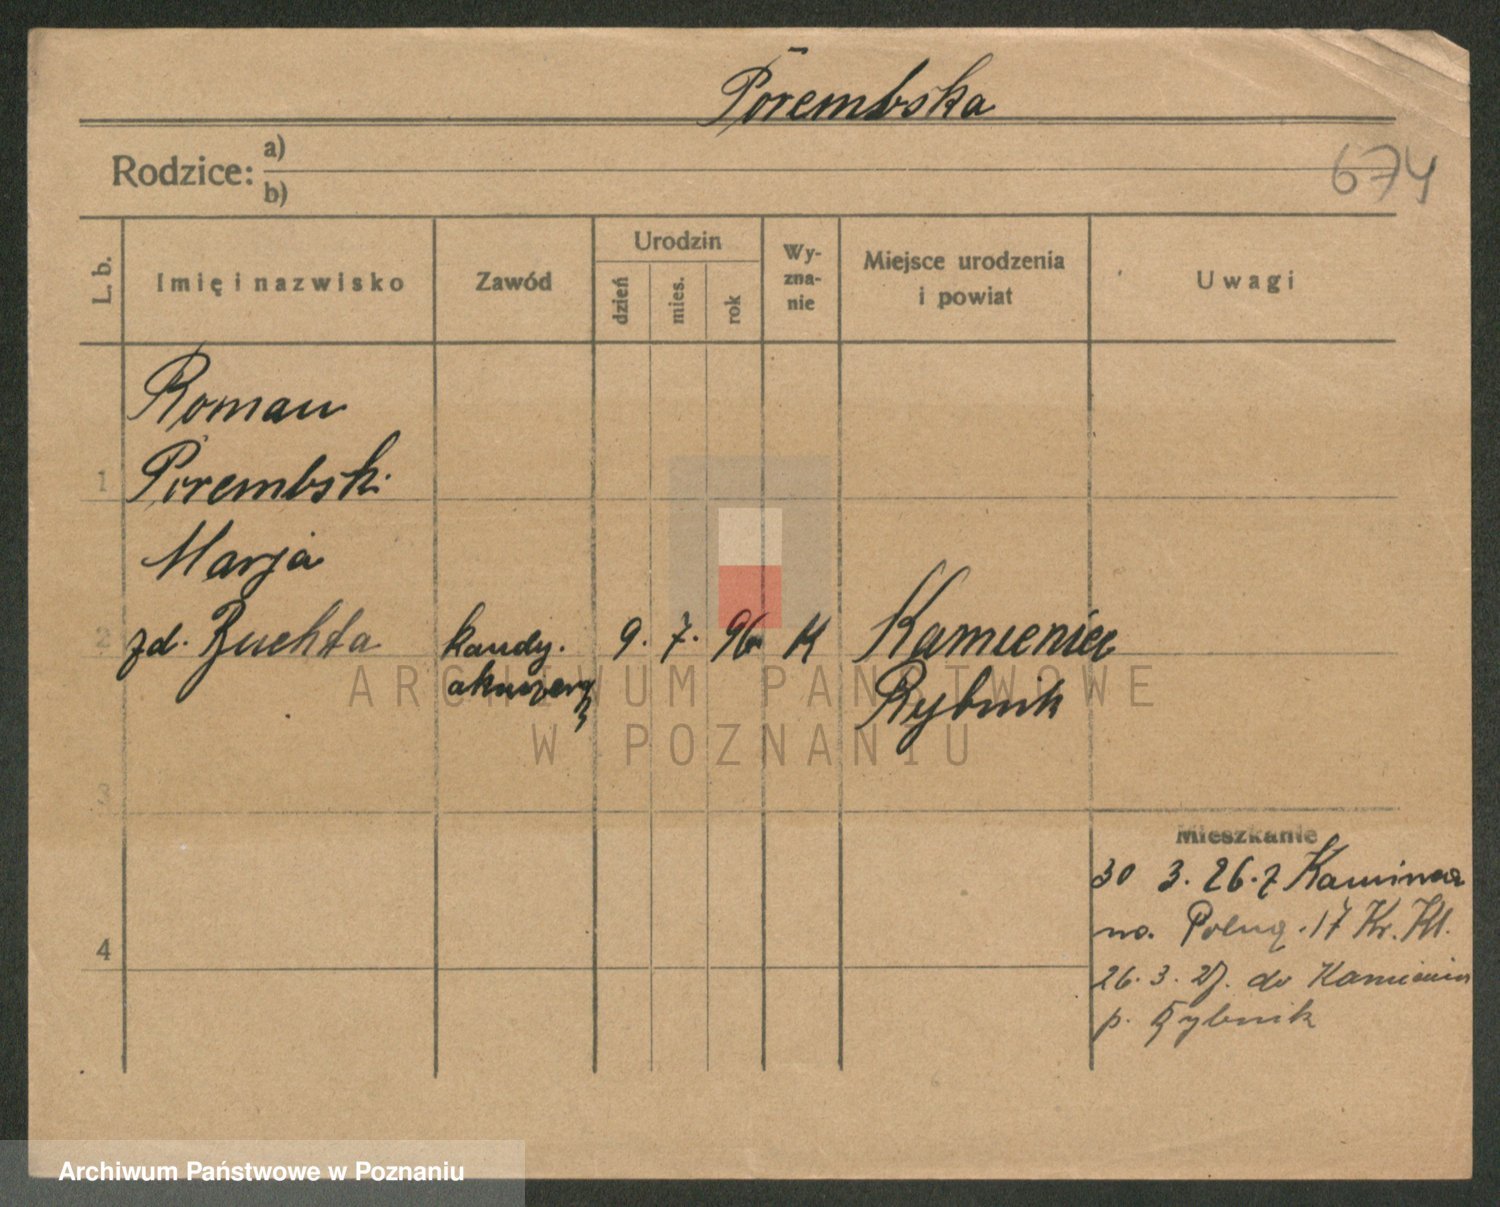 Porembska
Rodzice: a)
b)
674
L. b.
Imię i nazwisko
Zawód
Urodzin
dzień
mies.
rok
Wy-
zna-
nie
Miejsce urodzenia
i powiat
Uwagi
Roman
1 Porembski
Marja
2 zd. Buchta kandy. 9. 7. 96 K Kamieniec
akuszerq Rybnik
3
Mieszkanie
30 3. 26. z
4 na. Polną. 17 Kr. Kl.
26. 3. 27. do Kamienia
p. Rybnik
ARCHIWUM PAŃSTWOWE
W POZNANIU
Archiwum Państwowe w Poznaniu